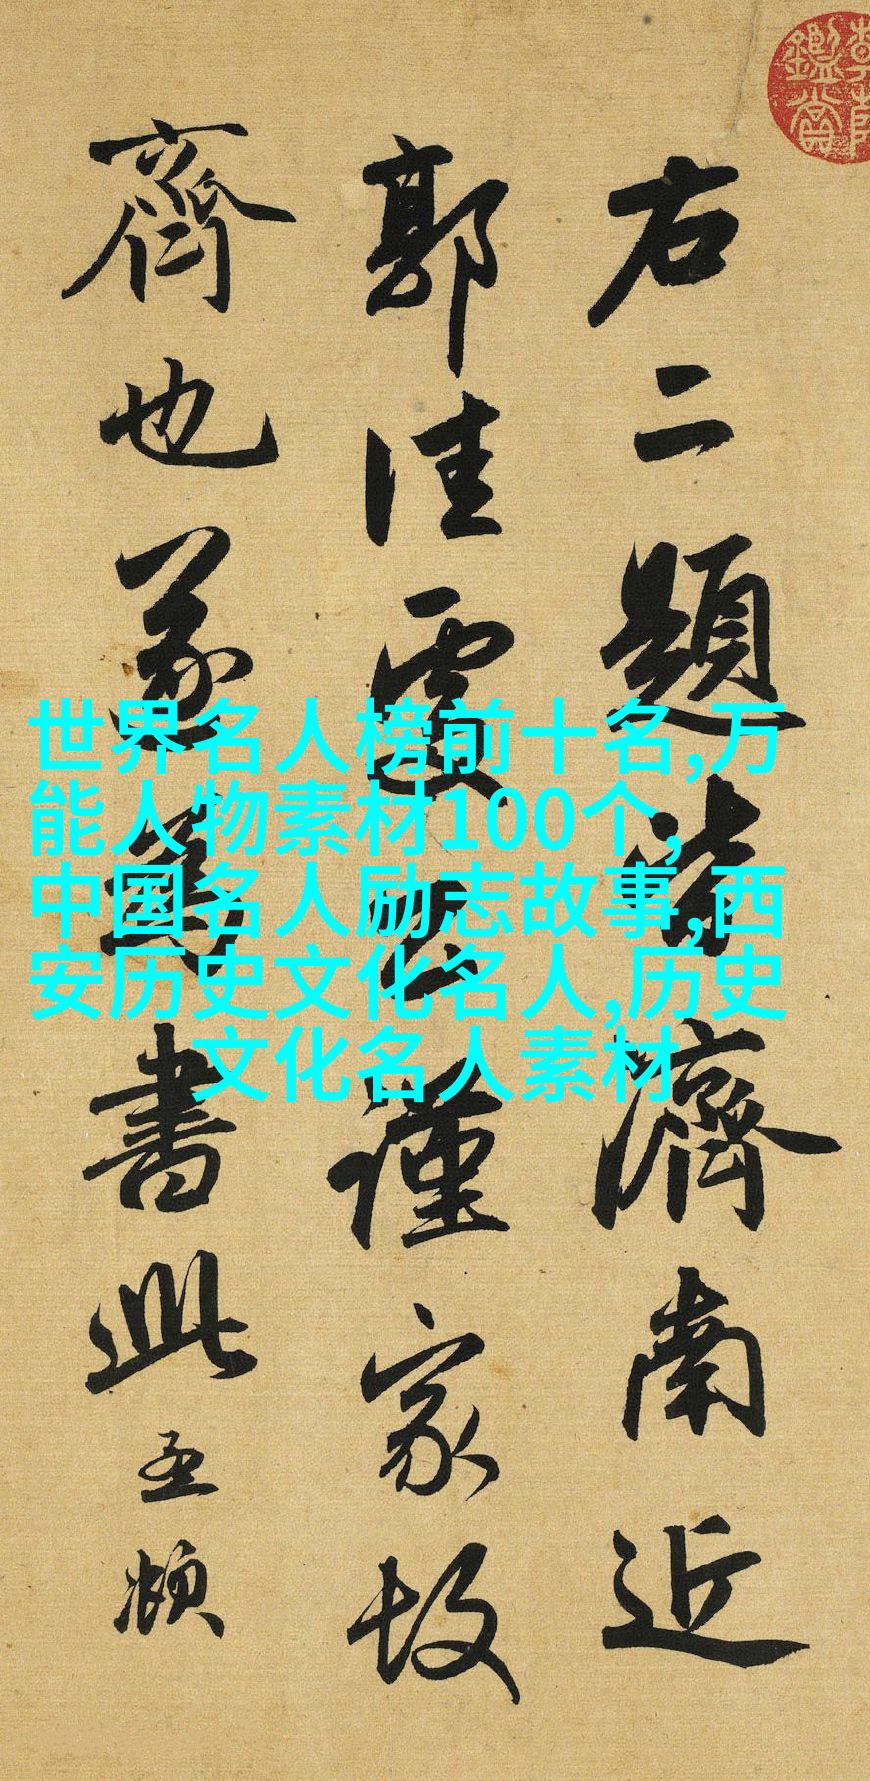 右二題皆濟南近
郭佳處公謹家故
齊也遂為書此孟頫
世界名人榜前十名,万
能人物素材100个,
中国名人励志故事,西
安历史文化名人,历史
文化名人素材